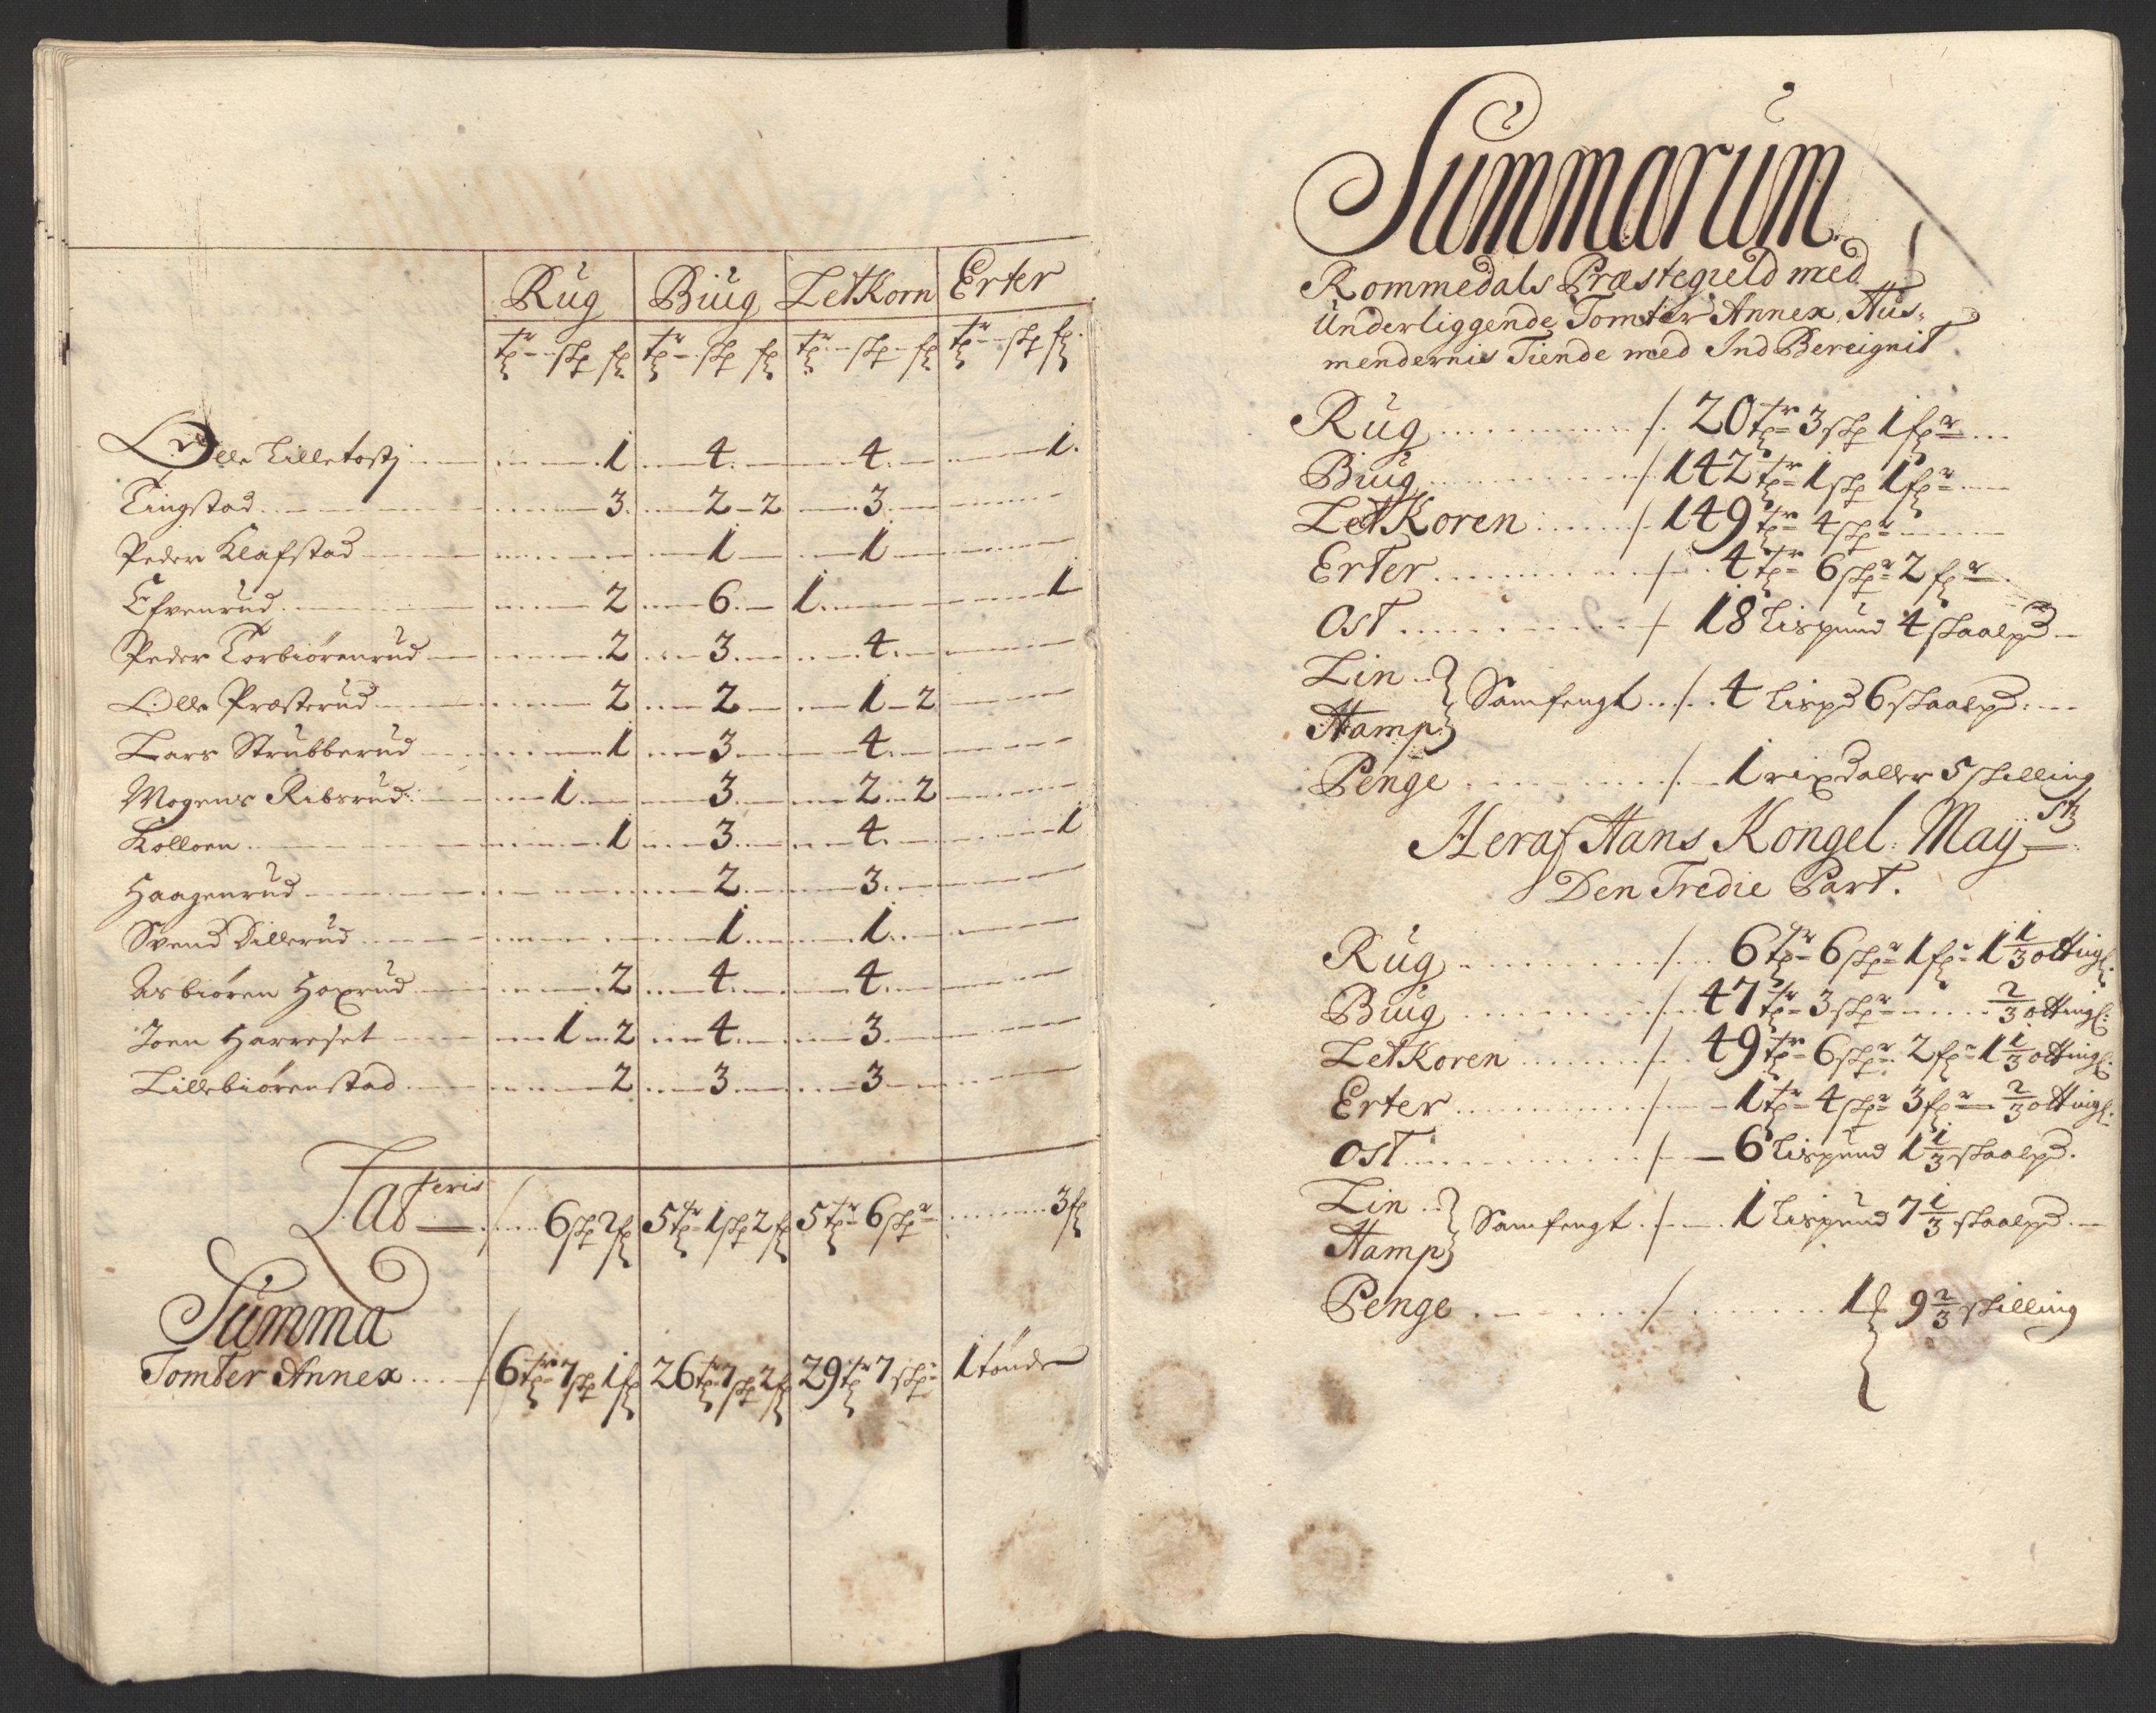 Rug Biug LetKorn Erter
tr skp fr tr skp fr tr skp fr tr skp fr
Olle Lilletosti 1 4 4 1
Tingstad 3 2 2 3
Peder Klafstad 1 1
Efvenrud 2 6 1 1
Peder Torbiörenrud 2 3 4
Olle Præsterud 2 2 1 2
Lars Strubberud 1 3 4
Mogens Ribsrud 1 3 2 2
Kolloen 1 3 4 1
Haagenrud 2 3
Svend Dillerud 1 1
Asbiören Hoxrud 2 4 4
Joen Harreset 1 2 4 3
Lillebiörenstad 2 3 3
Lateris 6 skp 2 f 5 tr 1 skp 2 f 5 tr 6 skpr 3 f
Summa
Tomter Annex 6 tr 7 skp 1 f 26 tr 7 skp 2 f 29 tr 7 skpr 1 tönde
Summarum
Rommedals Præstegield med
Underliggende Tomter Annex, Hus-
mendernis Tiende med Ind Bereignit
Rug 20 tr 3 skp 1 fr
Biug 142 tr 1 skp 1 fr
LetKoren 149 tr 4 skpr
Erter 4 tr 6 skpr 2 fr
Ost 18 Lispund 4 skaalpd
Lin
Samfengt 4 Lispd 6 skaalpd
Hamp
Penge 1 rixdaller 5 skilling
Heraf Hans Kongel: Mayst
Den Tredie Part.
Rug 6 tr 6 skpr 1 fr 1 1/3 otting
Biug 47 tr 3 skpr 2/3 otting
LetKoren 49 tr 6 skpr 2 fr 1 1/3 otting
Erter 1 tr 4 skpr 3 fr 2/3 otting
Ost 6 Lispund 1 1/3 skaalpd.
Lin
Samfengt 1 Lispund 7 1/3 skaalpd.
Hamp
Penge 1 f 9 2/3 skilling